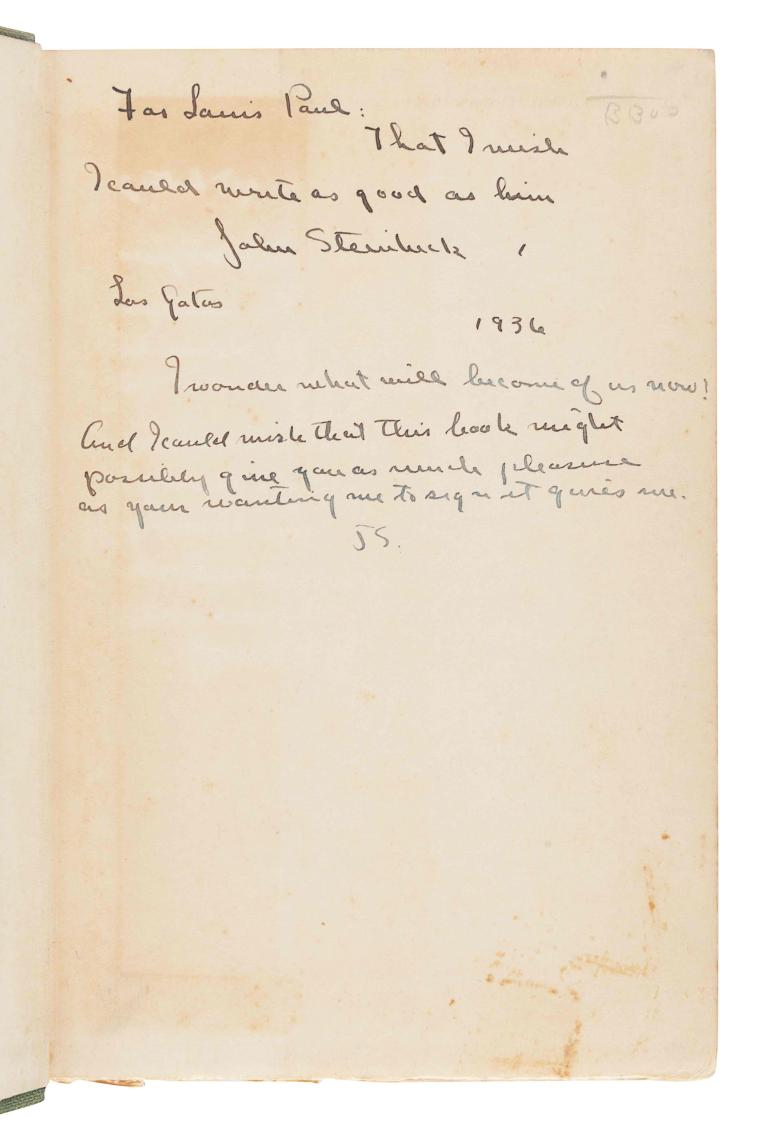 For Louis Paul:
That I wish
I could write as good as him
John Steinbeck
Los Gatos
1936
I wonder what will become of us now!
And I could wish that this book might
possibly give you as much pleasure
as your wanting me to sign it gives me.
JS.